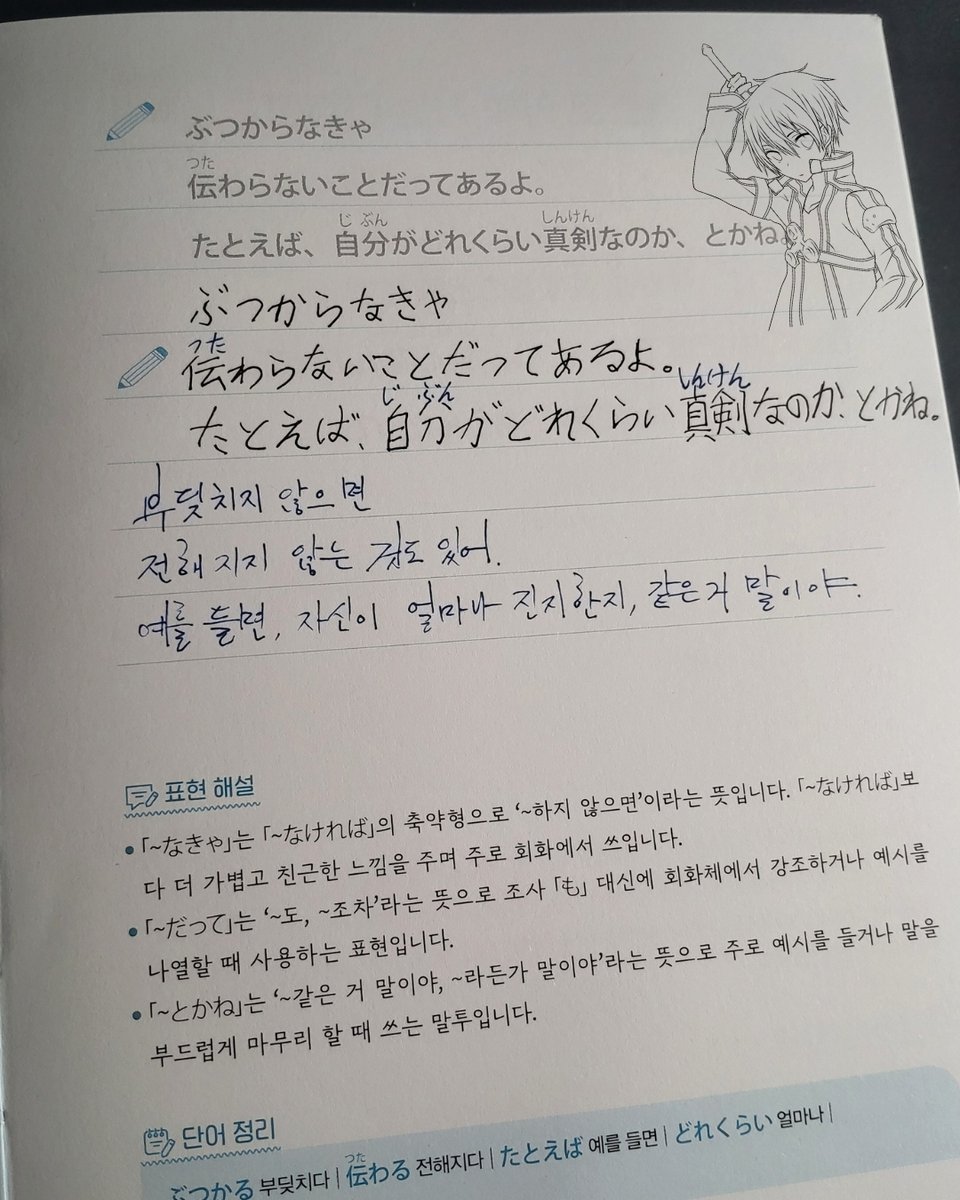 ぶつからなきゃ
つた
伝わらないことだってあるよ。
じ ぶん しんけん
たとえば、自分がどれくらい真剣なのか、とかね。
ぶつからなきゃ
つた
伝わらないことだってあるよ。
じ ぶん しんけん
たとえば、自分がどれくらい真剣なのか、とかね。
부딪치지 않으면
전해지지 않는 것도 있어.
예를 들면, 자신이 얼마나 진지한지, 같은거 말이야.
표현 해설
•「~なきゃ」는 「~なければ」의 축약형으로 ‘~하지 않으면’이라는 뜻입니다. 「~なければ」보
다 더 가볍고 친근한 느낌을 주며 주로 회화에서 쓰입니다.
•「~だって」는 ‘~도, ~조차’라는 뜻으로 조사 「も」 대신에 회화체에서 강조하거나 예시를
나열할 때 사용하는 표현입니다.
•「~とかね」는 ‘~같은 거 말이야, ~라든가 말이야’라는 뜻으로 주로 예시를 들거나 말을
부드럽게 마무리 할 때 쓰는 말투입니다.
단어 정리
つた
ぶつかる 부딪치다 | 伝わる 전해지다 | たとえば 예를 들면 | どれくらい 얼마나 |